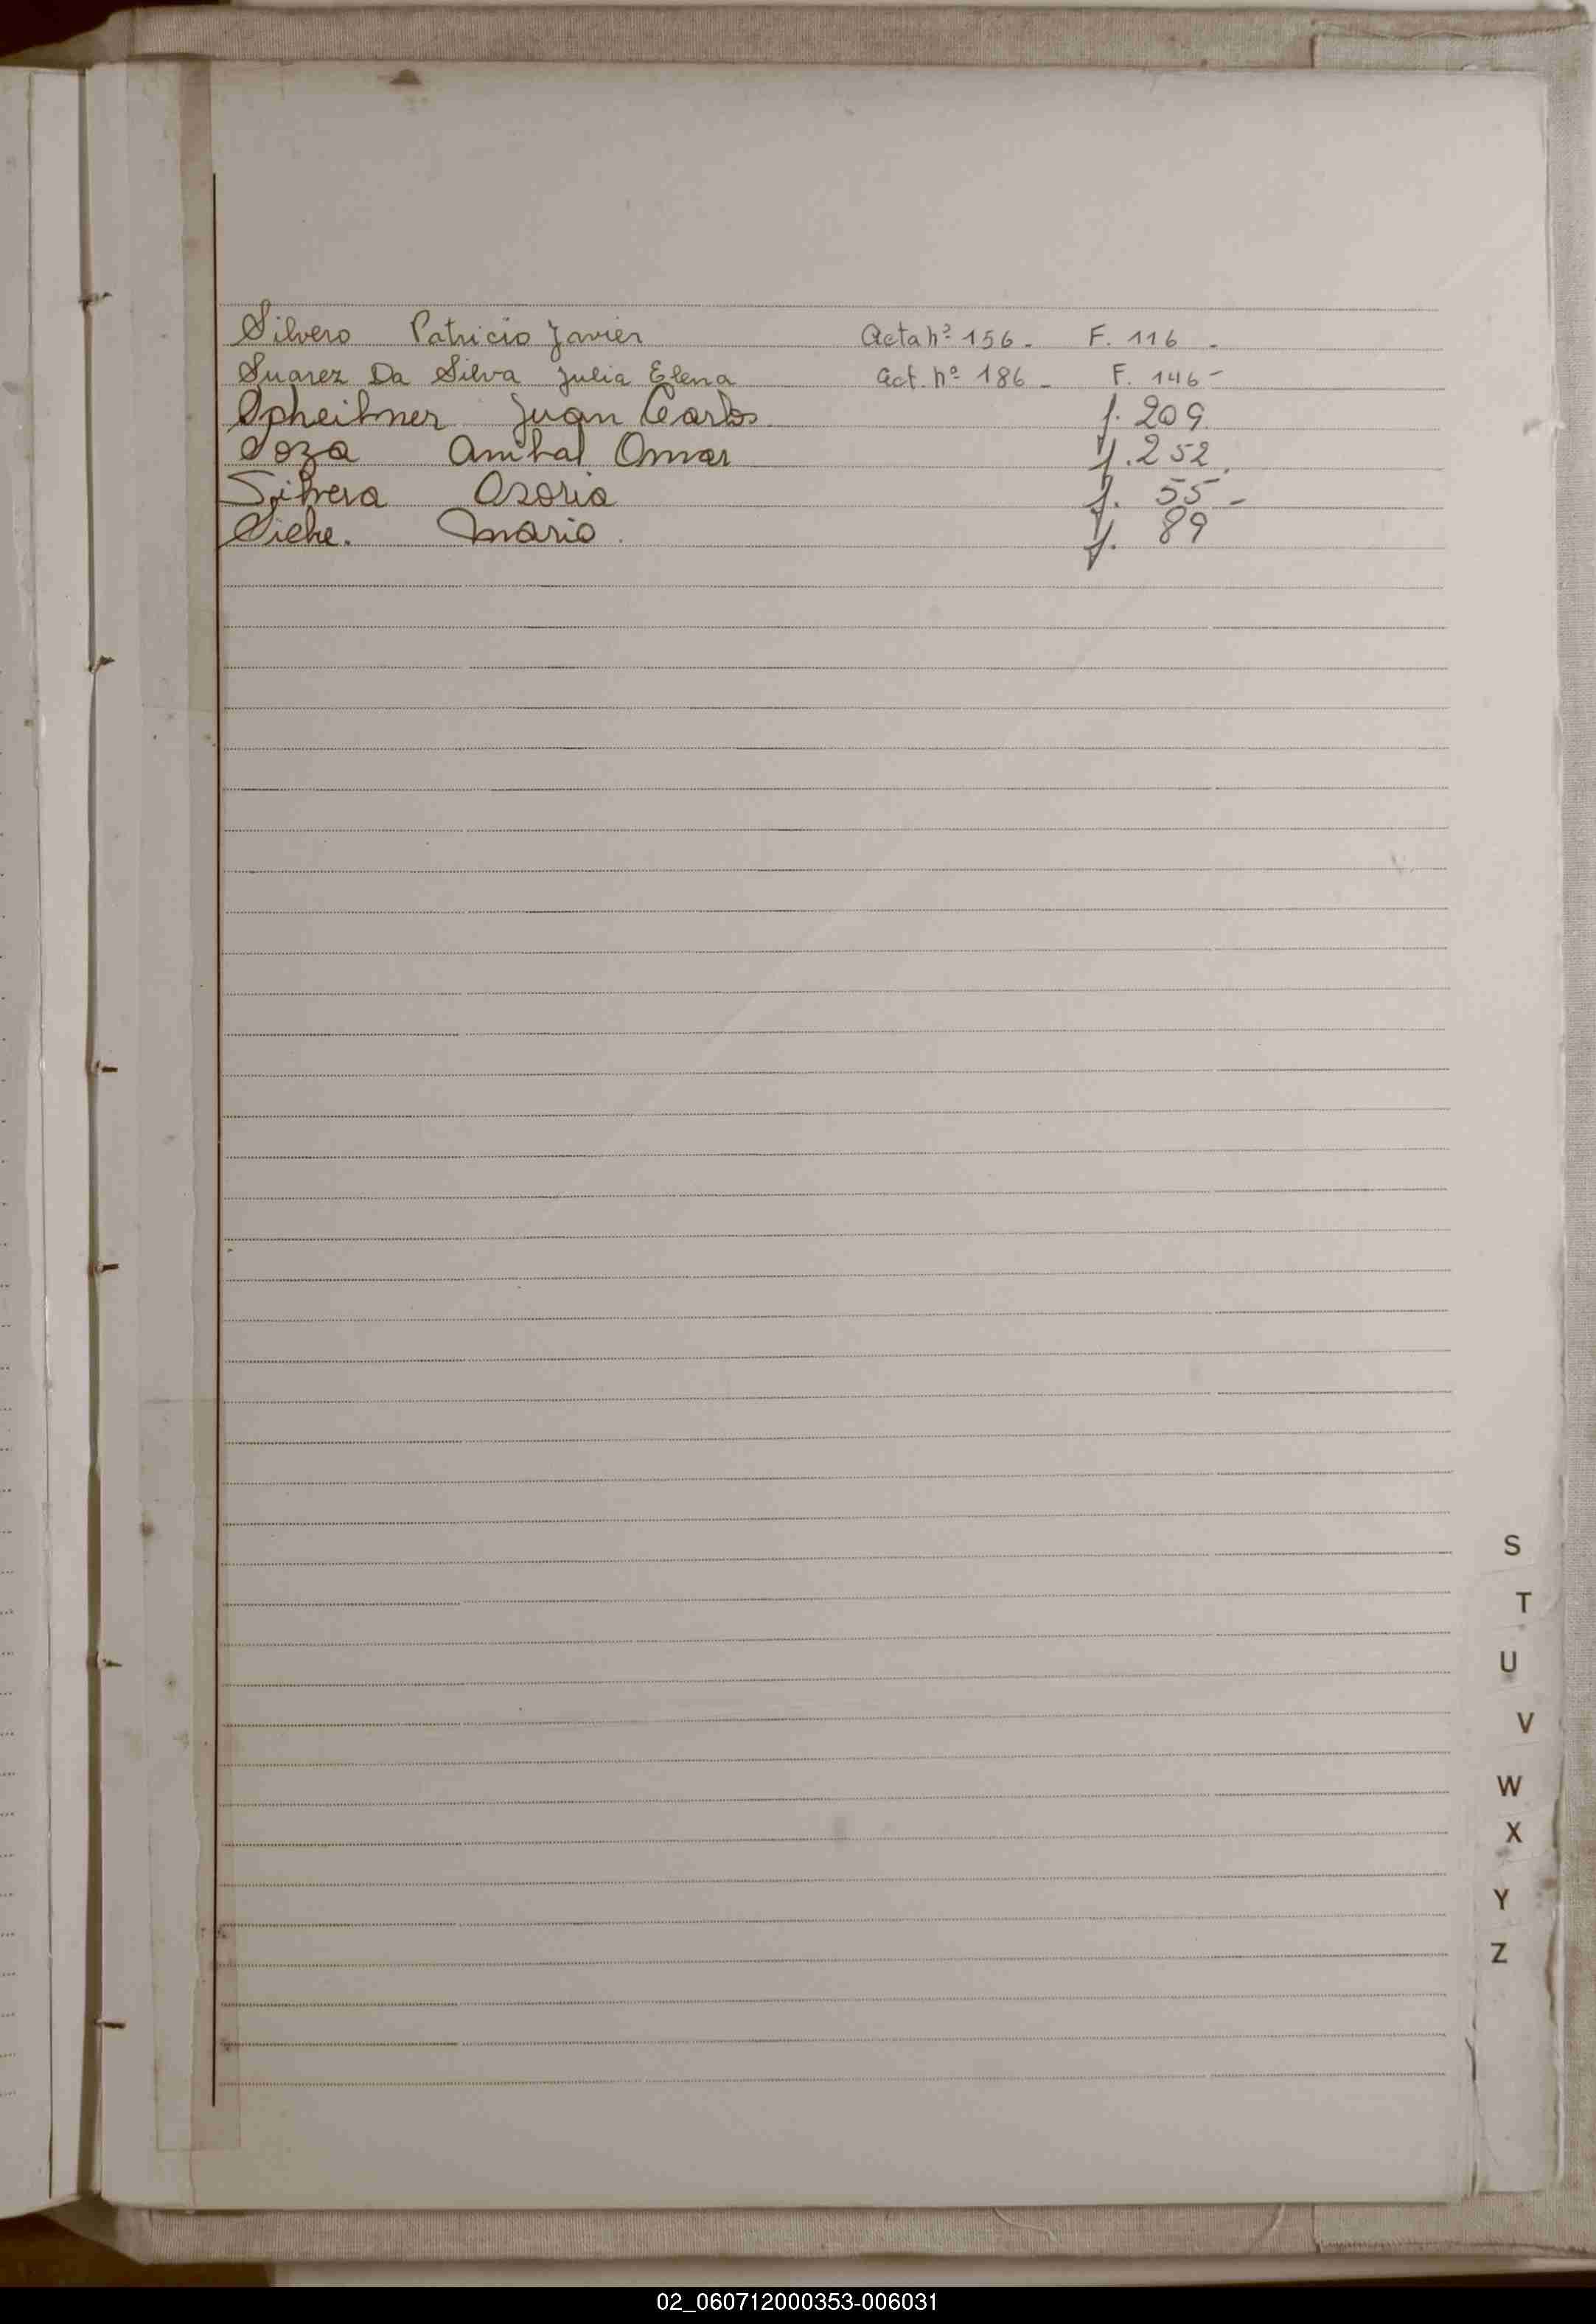 Silvero Patricio Javier Acta nº 156 - F. 116 -
Suarez Da Silva Julia Elena Act. nº 186 - F. 146 -
Spheitner Juan Carlos. f. 209.
Soza Anibal Omar f. 252.
Silvera Osorio f. 55 -
Siehe. Mario. f. 89
S
T
U
V
W
X
Y
Z
02_060712000353-006031